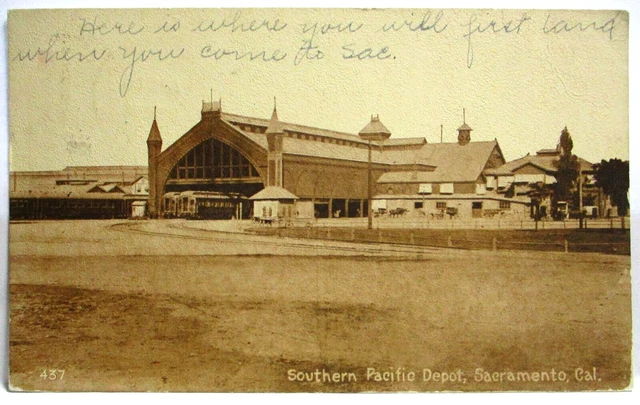 Here is where you will first land
when you come to Sac.
437
Southern Pacific Depot, Sacramento, Cal.